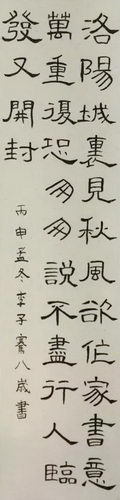 洛陽城裏見秋風欲作家書意
萬重復恐匆匆說不盡行人臨
發又開封
丙申孟冬李子騫八歲書